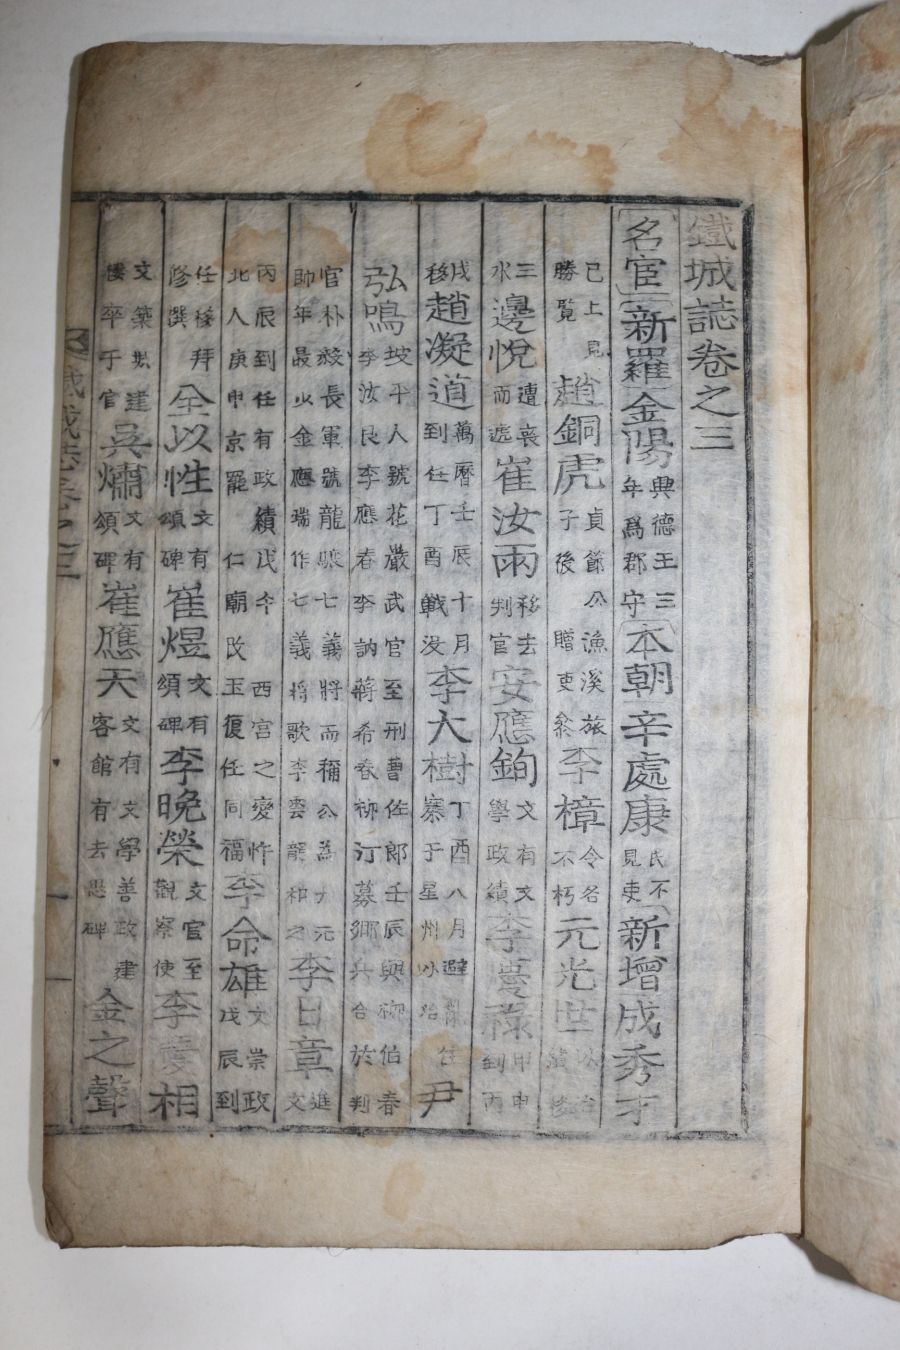 鐵城誌卷之三
名宦 新羅 金陽 興德王三年爲郡守 本朝 辛處康 見吏民不 新增 成秀才
已上見勝覽 趙銅虎 貞節公漁溪旅子後贈吏參 李樟 令名不朽 元光世
三水 邊悅 遭喪而遞 崔汝雨 移去判官 安應鉤 文有文學政績 李慶祿 甲申到丙
戌移 趙凝道 萬曆壬辰十月到任丁酉戰没 李大樹 丁酉八月避亂在寨于星州以 尹
弘鳴 坡平人號花巖武官至刑曹佐郎壬辰與柳伯春李汝良李應春李訥蔣希春柳汀募鄕兵合於判
官朴毅長軍號龍驤七義將而稱公爲 元帥年最少金應瑞作七義將歌李雲龍和之 李日章 進文
丙辰到任有政績戊午西宮之變忤北人庚申京罷仁廟改玉復任同福 李命雄 文崇政戊辰到
任移拜修撰 全以性 文有頌碑 崔煜 文有頌碑 李晩榮 文官至觀察使 李慶相
文築 建樓卒于官 吳㶅 文有頌碑 崔應天 文有文學善政建客館有去思碑 金之聲
鐵城誌卷之三 一